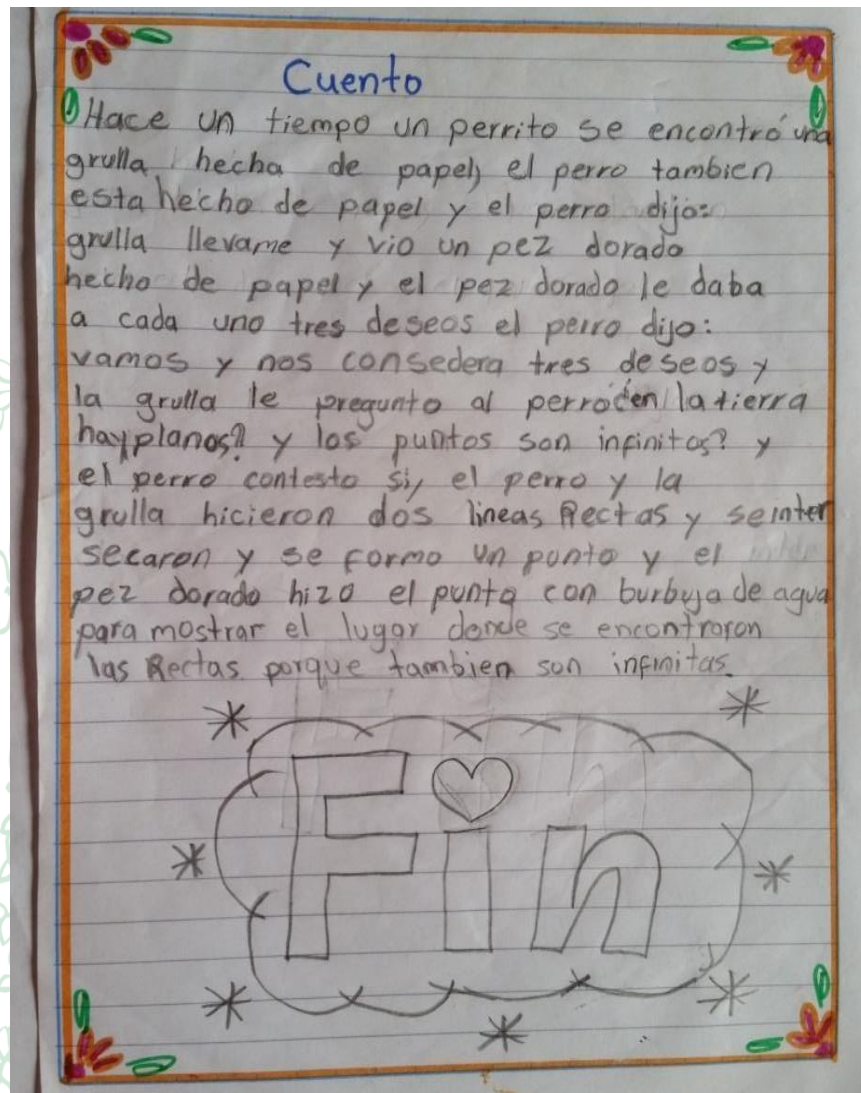 Cuento
Hace un tiempo un perrito se encontró una
grulla hecha de papel, el perro tambien
esta hecho de papel y el perro dijo:
grulla llevame y vio un pez dorado
hecho de papel y el pez dorado le daba
a cada uno tres deseos el perro dijo:
vamos y nos consedera tres deseos y
la grulla le pregunto al perro ¿en la tierra
hay planos? y los puntos son infinitos? y
el perro contesto si, el perro y la
grulla hicieron dos lineas Rectas y se inter
secaron y se formo un punto y el
pez dorado hizo el punto con burbuja de agua
para mostrar el lugar donde se encontraron
las Rectas porque tambien son infinitas.
Fin